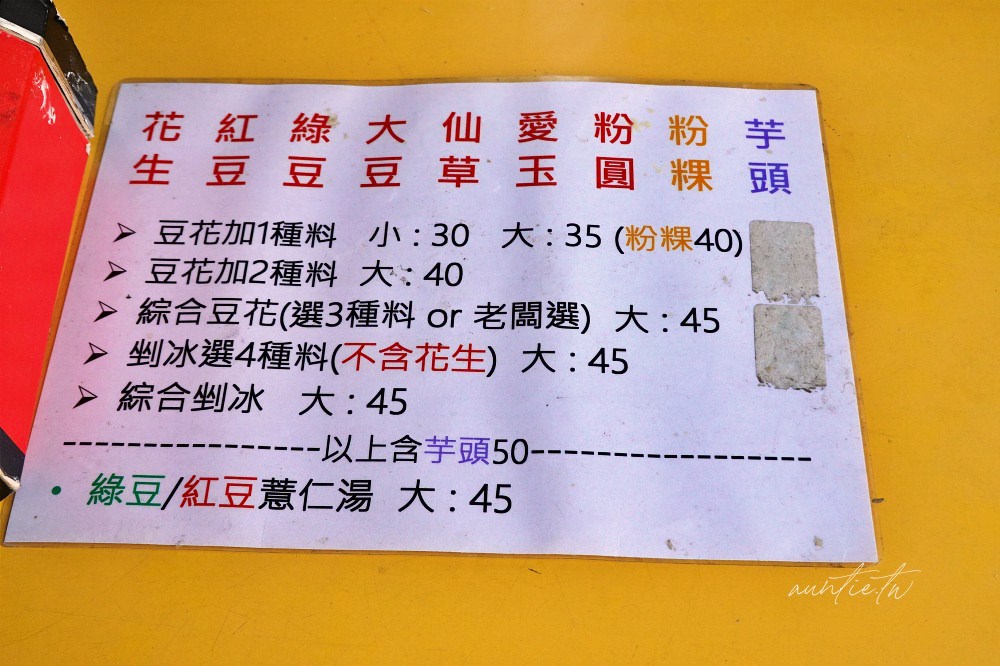 花生 紅豆 綠豆 大豆 仙草 愛玉 粉圓 粉粿 芋頭
➢ 豆花加1種料 小:30 大:35 (粉粿40)
➢ 豆花加2種料 大:40
➢ 綜合豆花(選3種料 or 老闆選) 大:45
➢ 剉冰選4種料(不含花生) 大:45
➢ 綜合剉冰 大:45
----------------以上含芋頭50-----------------
• 綠豆/紅豆薏仁湯 大:45
auntie.tw